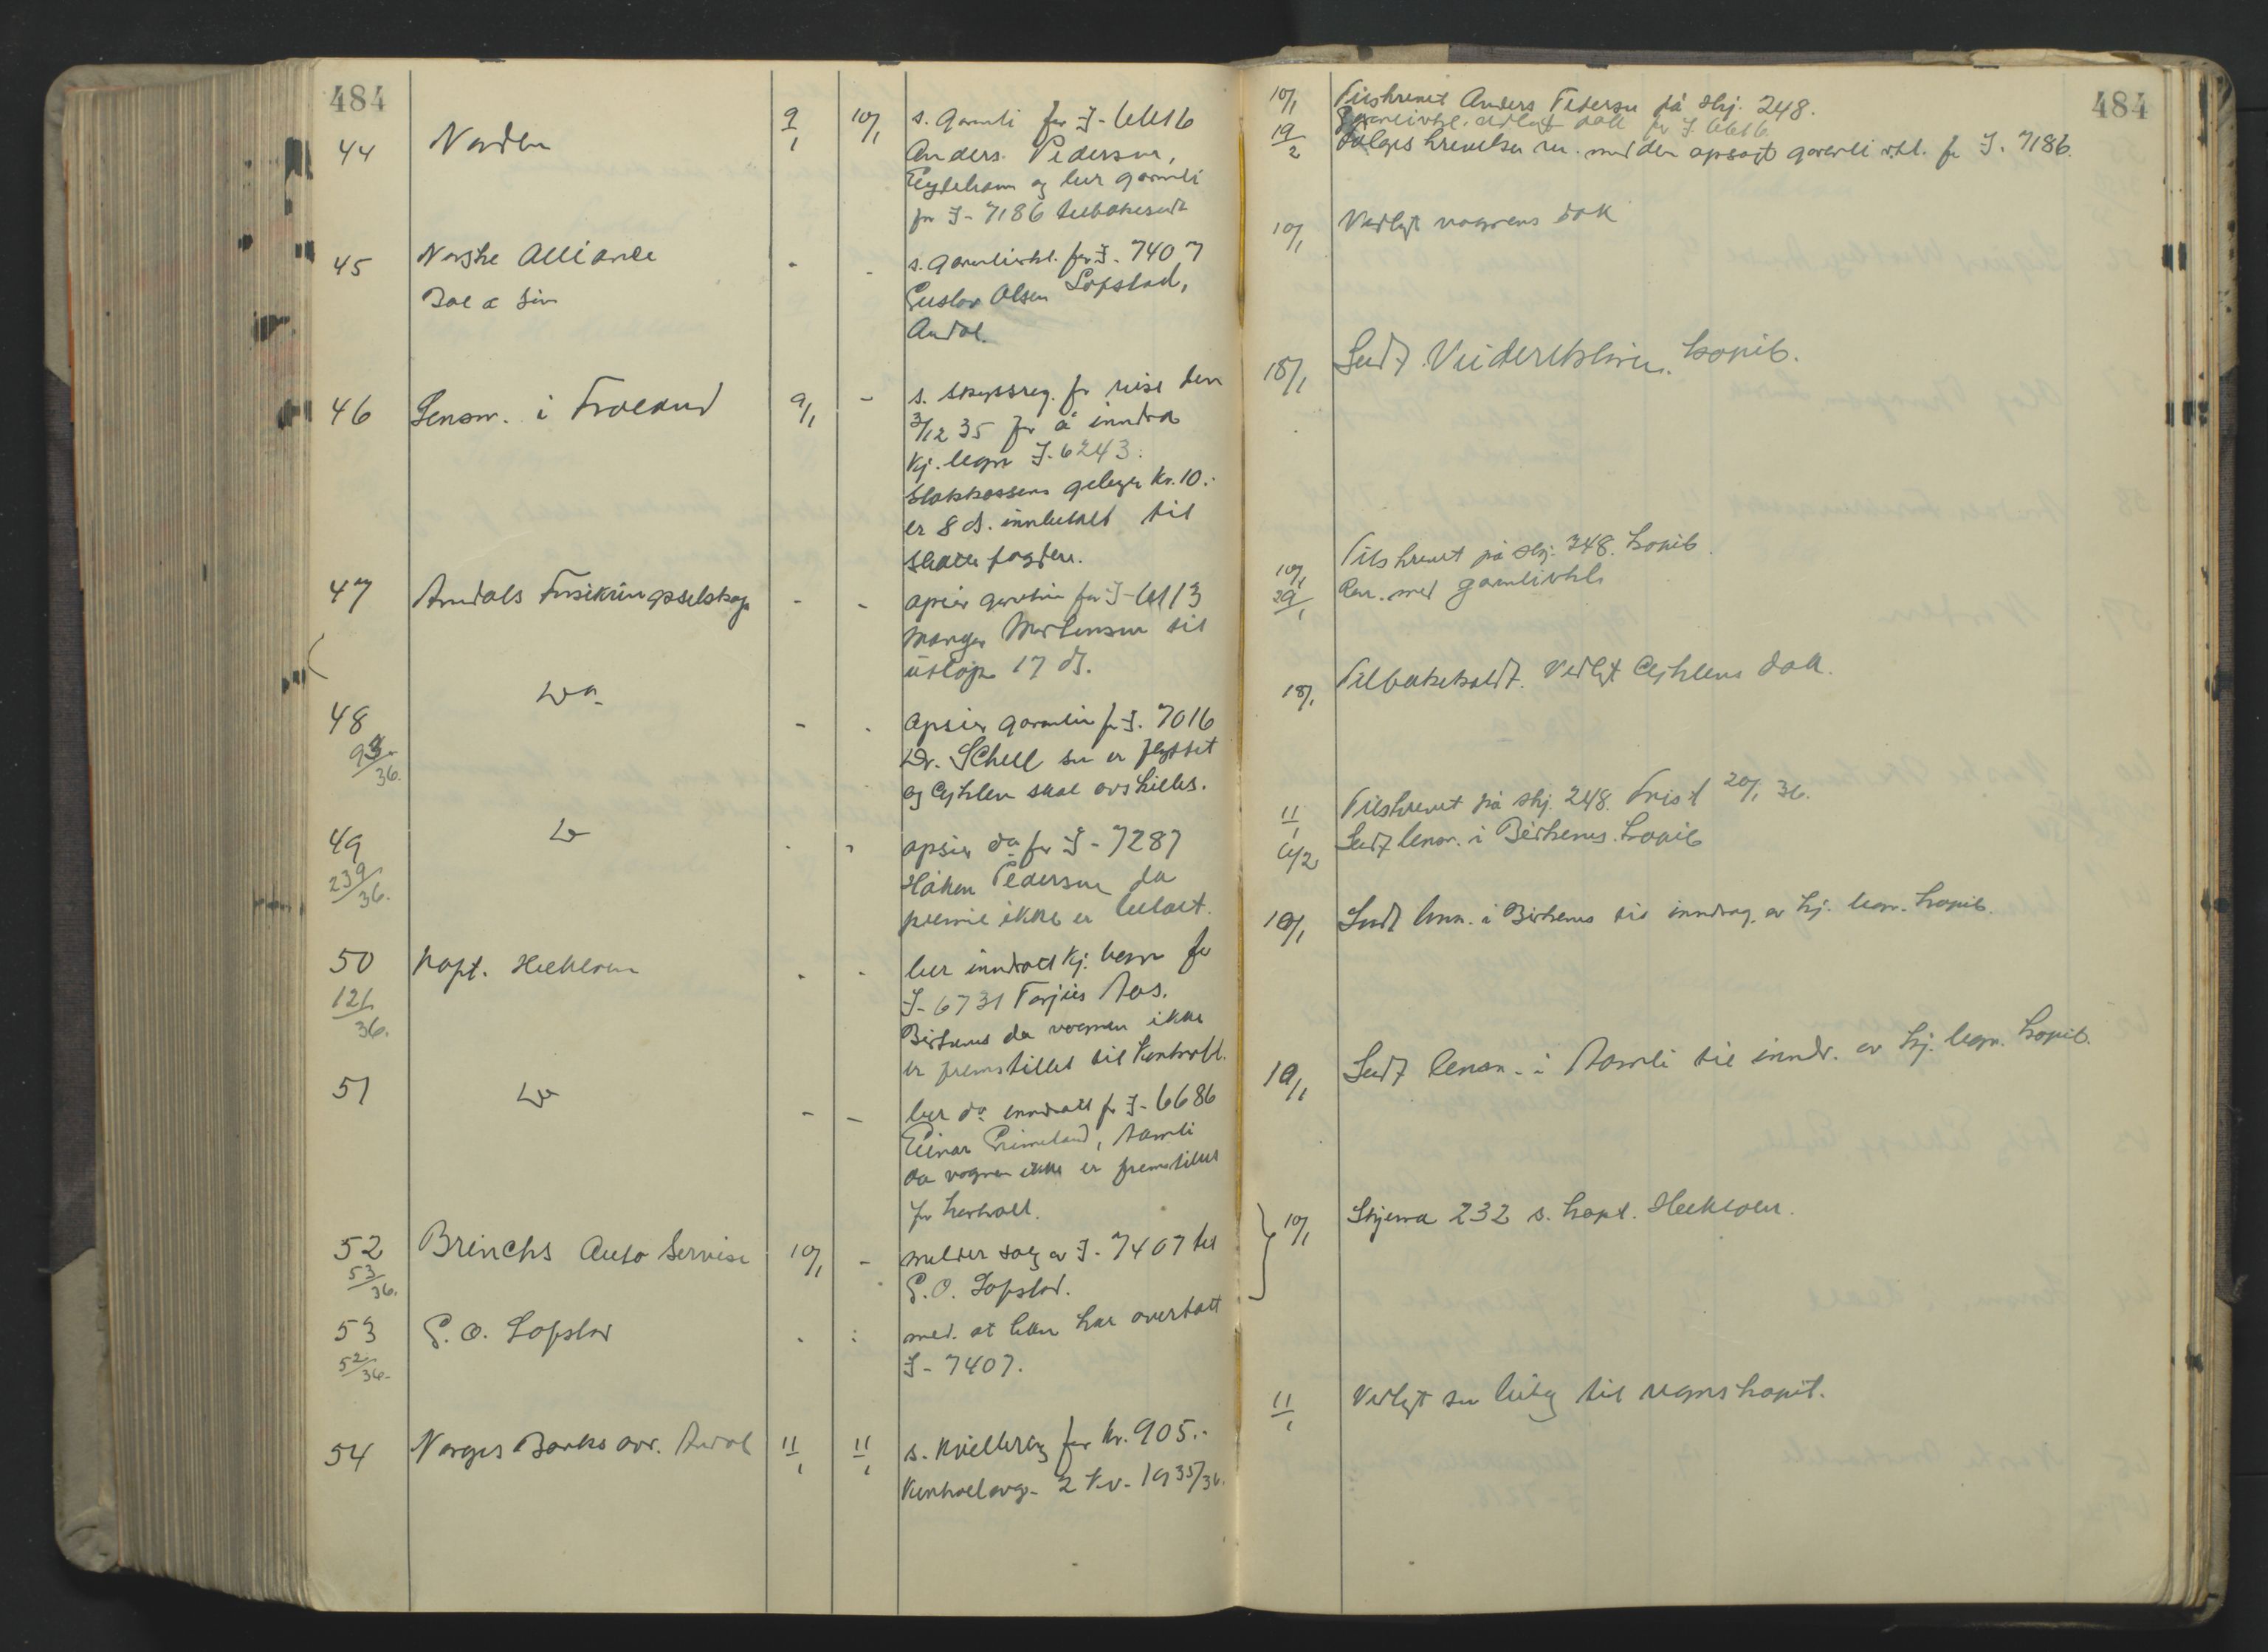 484
44 Norden 9/1 10/1 s. garanti for I-6616
Anders Pedersen,
Eydehavn og ber garanti
for I-7186 tilbakesendt
45 Norske Alliance - - s. garantierkl. for I-7407
Gustav Olsen Lofstad,
Ardal.
46 Lensm. i Froland 9/1 - s. skyssreg. for reise den
3/12 35 for å inndra
kj. legn I-6243.
Statskassens gebyr kr. 10.-
er 8 ds. innbetalt til
skattefogden.
47 Arndals Forsikringsselskap - - opsier garantien for I-6113
Mortensen til
utløp 17 ds.
48 Do. - - opsier garantien for I-7016
93/36. Dr. Schell som er flyttet
og Cyklen skal avskiltes.
49 Do - - opsier do for I-7287
239/36. Håkon Pedersen da
premie ikke er betalt.
50 Kapt. Heckloen - - ber inndratt kj. legn for
121/36. I-6731 Torjus Aas,
Birkenes da vognen ikke
er fremstillet til kontroll.
51 Do - - ber do inndratt for I-6686
Einar Grimeland, Aamli
da vognen ikke er fremstillet
for kontroll.
52 Brinchs Auto Service 10/1 - melder salg av I-7407 til
53/36. G. O. Lofstad.
53 G. O. Lofstad - : med. at han har overtatt
52/36. I-7407.
54 Norges Banks avd. Ardal 11/1 11/1 s. kvittering for kr. 905.-
Kontrolavg. 2 kv. 1935/36.
484
10/1 Tilskrevet Anders Pedersen på skj. 248.
Garantierkl. vedlagt dok for I 6616
19/2 følgeskrivelse med den opsagt garanti erkl. for I. 7186.
10/1 Vedlagt vognens dok
18/1 Sendt kopib.
10/1 Tilskrevet på skj. 248. kopib.
29/1 Ren. med garantierkl.
18/1 Tilbakeholdt. Vedlagt Cyklens dok.
11/1 Tilskrevet på skj. 248. Frist 20/1 36.
6/2 Sendt lensm. i Birkenes. kopib
10/1 Sendt lensm. i Birkenes til inndrag. av kj. legn. kopib.
10/1 Sendt lensm. i Aamli til inndr. av kj. legn. kopib.
10/1 Skjema 232 s. kapt. Heckloen.
11/1 Vedlagt som bilag til regnskapet.